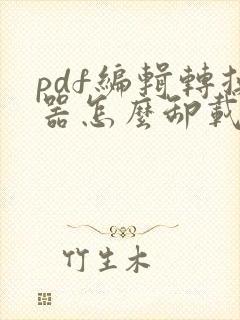 pdf編輯轉换
器怎麼卸載
竹生木